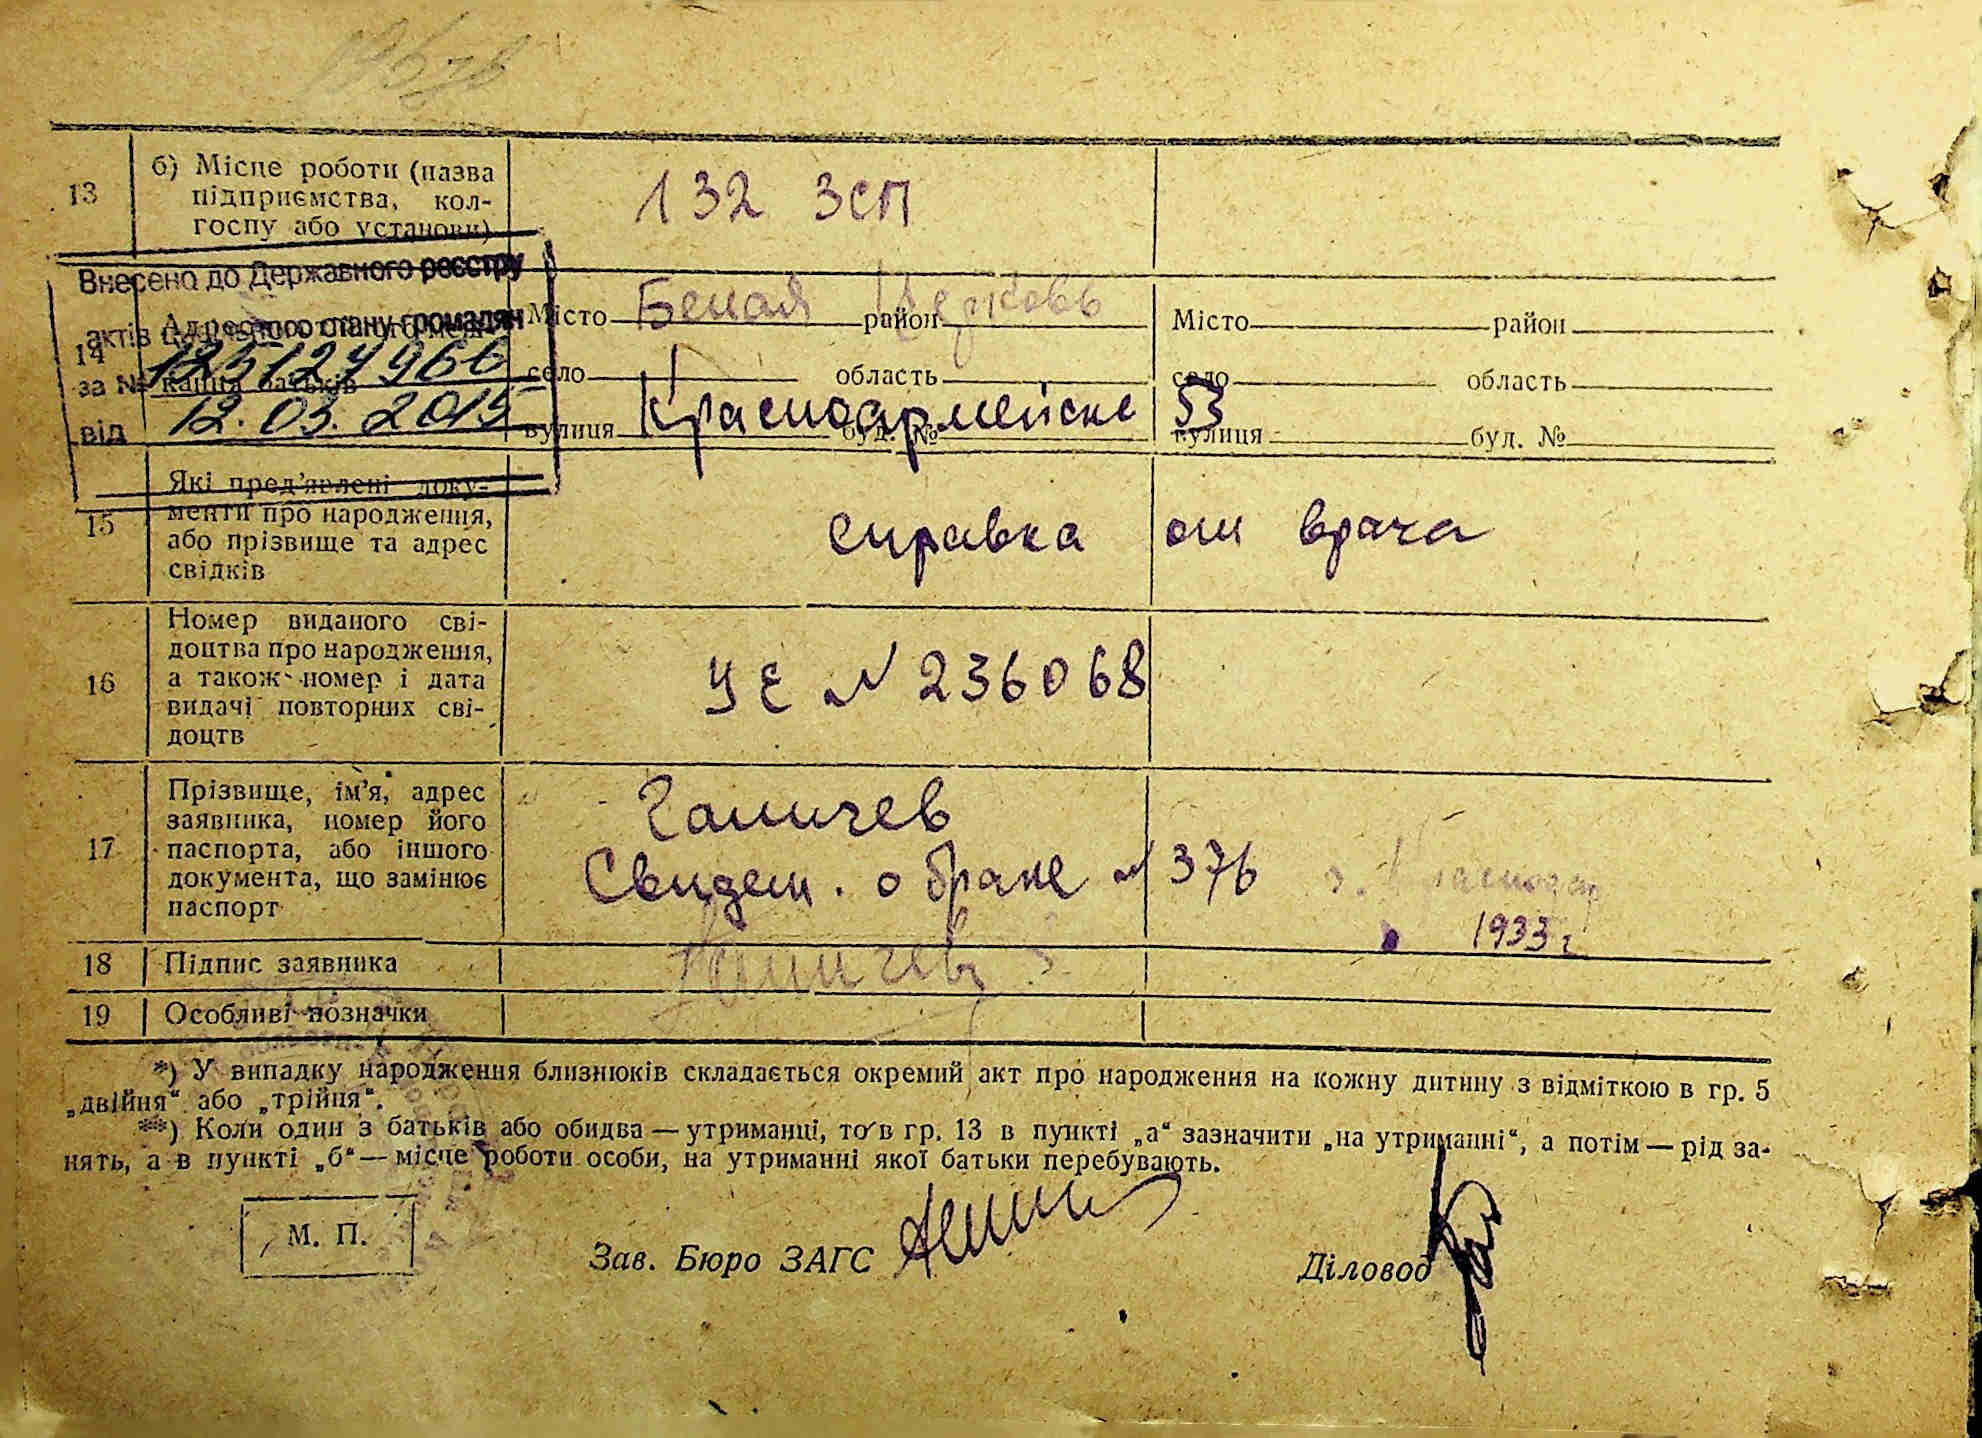 13
б) Місце роботи (назва
підприємства, кол-
госпу або установи)
132 ЗСП
Внесено до Державного реєстру
актів цивільного стану громадян
за № 125127966
від 12.03.2015
14
Місто Белая Церковь район
село область
вулиця Красноармейске буд. № 53
Місто район
село область
вулиця буд. №
15
Які пред'явлені доку-
менти про народження,
або прізвище та адрес
свідків
справка от врача
16
Номер виданого сві-
доцтва про народження,
а також номер і дата
видачі повторних сві-
доцтв
УЕ N 236068
17
Прізвище, ім'я, адрес
заявника, номер його
паспорта, або іншого
документа, що замінює
паспорт
Галичев
Свидет. о браке N 376 г. Краснодар
1933 г
18
Підпис заявника
Галичев
19
Особливі позначки
*) У випадку народження близнюків складається окремий акт про народження на кожну дитину з відміткою в гр. 5
„двійня“ або „трійня“.
**) Коли один з батьків або обидва — утриманці, то в гр. 13 в пункті „а“ зазначити „на утриманні“, а потім — рід за-
нять, а в пункті „б“ — місце роботи особи, на утриманні якої батьки перебувають.
М. П.
Зав. Бюро ЗАГС
Діловод